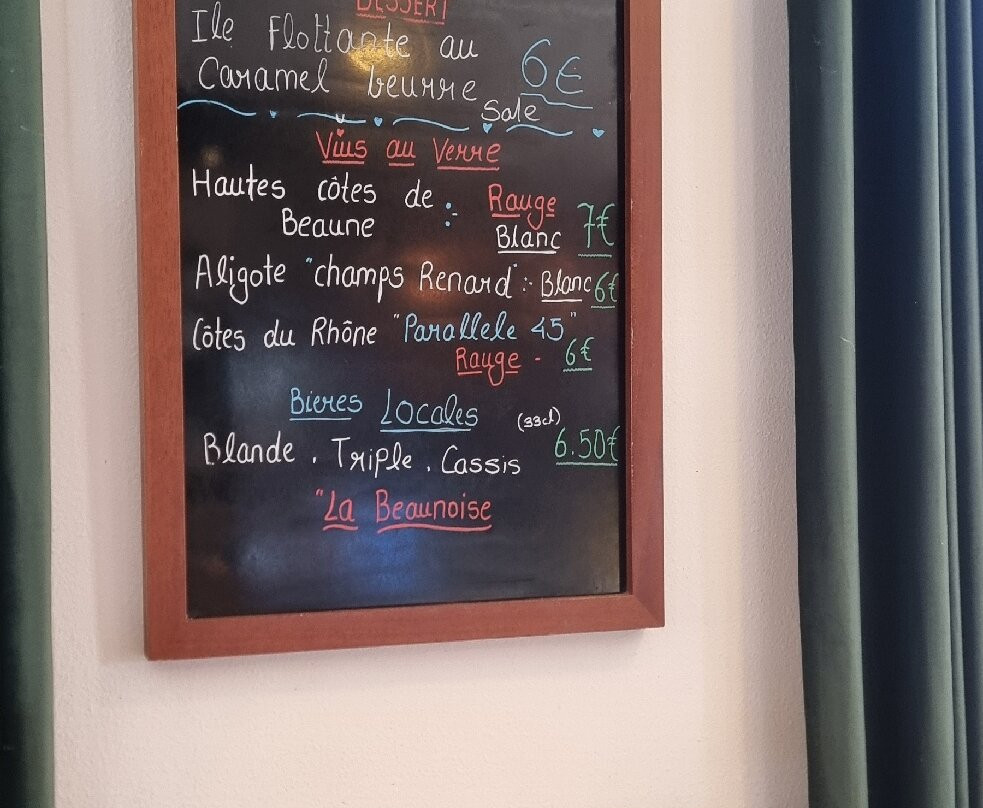 DESSERT
Ile Flottante au
Caramel beurre 6€
Salé
Vins au Verre
Hautes côtes de :- Rouge
Beaune Blanc 7€
Aligote "champs Renard" : Blanc 6€
Côtes du Rhône "Parallele 45"
Rouge - 6€
Bieres Locales (33cl)
Blonde . Triple . Cassis 6.50€
"La Beaunoise